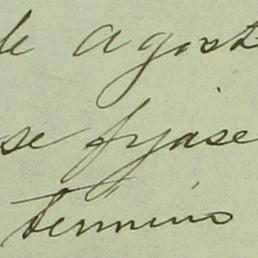 de agost
se fijase
termino